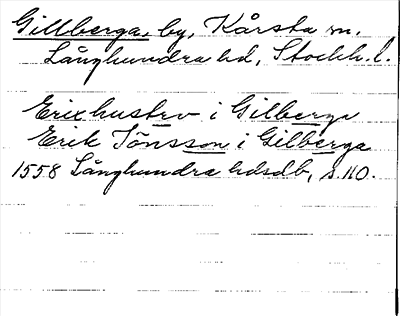 Gillberga, by, Kårsta sn.
Långhundra hd, Stockh. l.
Erix hustrv i Gilbergv
Erik Jönsson i Gilberga
1558 Långhundra hdsdb, s. 110.